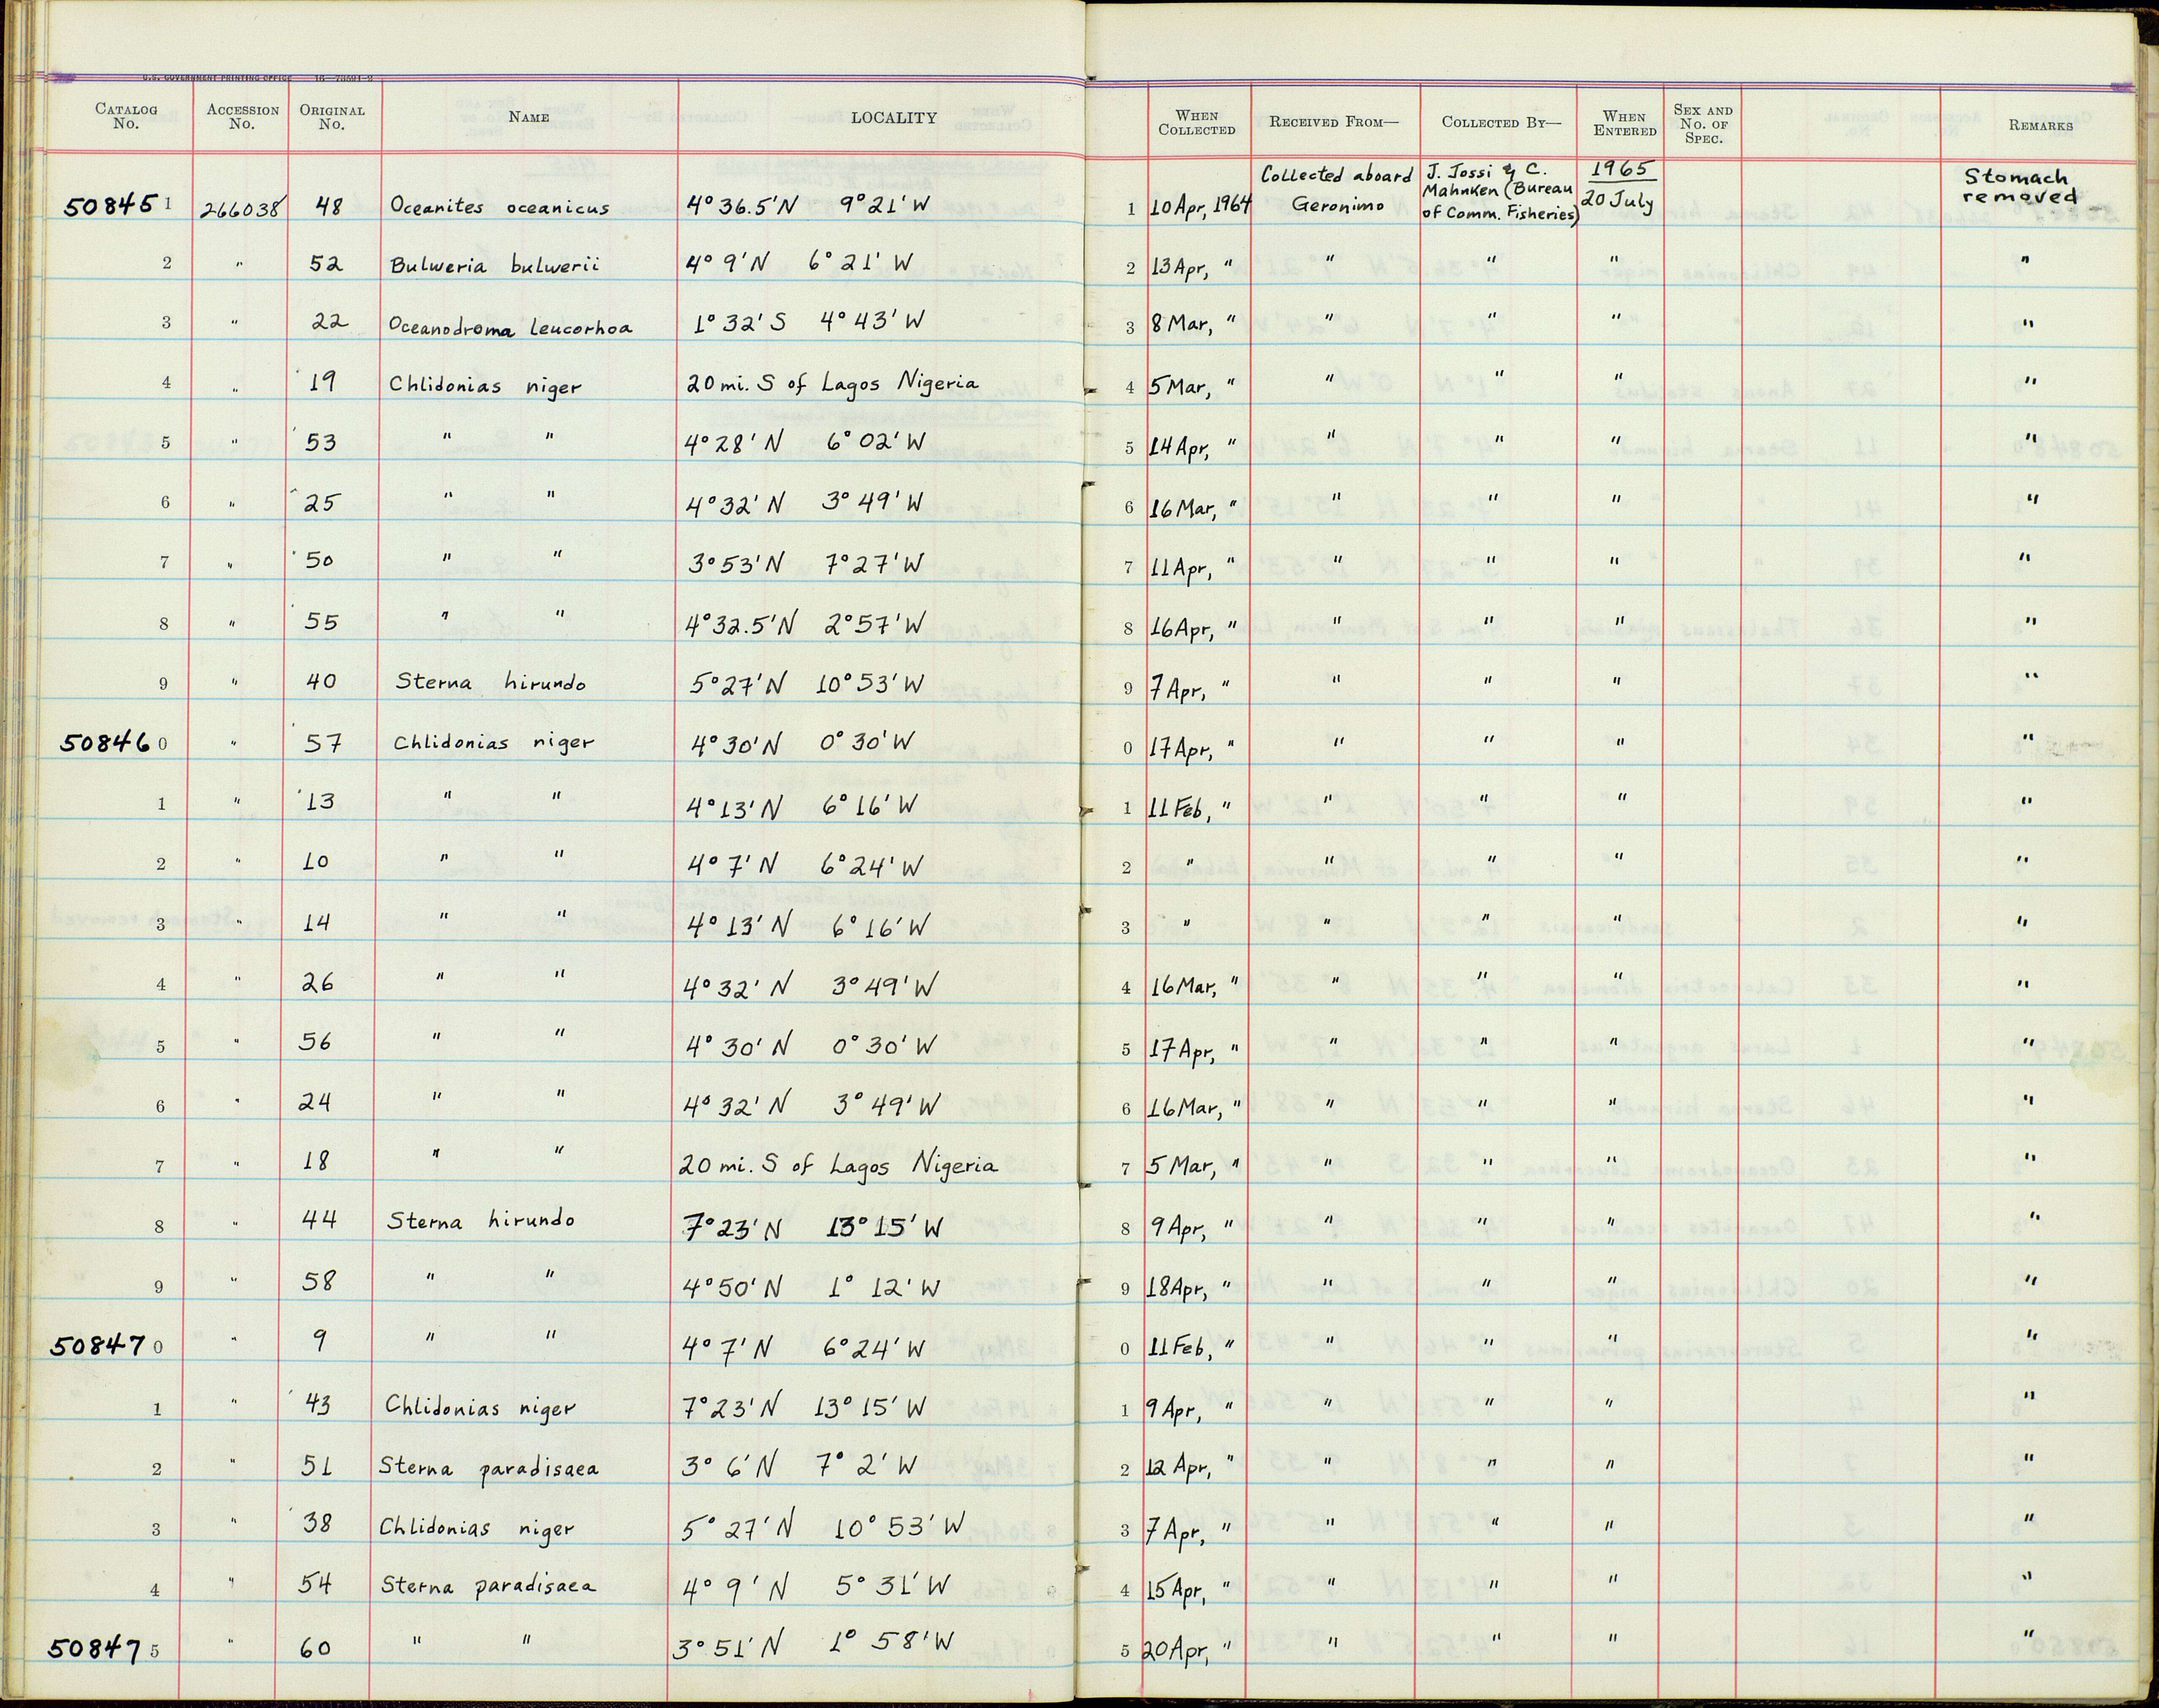 U.S. GOVERNMENT PRINTING OFFICE 16—73591-2
CATALOG No. ACCESSION No. ORIGINAL No. NAME LOCALITY WHEN COLLECTED RECEIVED FROM— COLLECTED BY— WHEN ENTERED SEX AND No. OF SPEC. REMARKS
508451 266038 48 Oceanites oceanicus 4° 36.5'N 9° 21' W 1 10 Apr, 1964 Collected aboard Geronimo J. Jossi & C. Mahnken (Bureau of Comm. Fisheries) 1965 20 July Stomach removed
2 " 52 Bulweria bulwerii 4° 9' N 6° 21' W 2 13 Apr, " " " " "
3 " 22 Oceanodroma leucorhoa 1° 32' S 4° 43' W 3 8 Mar, " " " " "
4 " 19 Chlidonias niger 20 mi. S of Lagos Nigeria 4 5 Mar, " " " " "
5 " 53 " " 4° 28' N 6° 02' W 5 14 Apr, " " " " "
6 " 25 " " 4° 32' N 3° 49' W 6 16 Mar, " " " " "
7 " 50 " " 3° 53' N 7° 27' W 7 11 Apr, " " " " "
8 " 55 " " 4° 32.5' N 2° 57' W 8 16 Apr, " " " " "
9 " 40 Sterna hirundo 5° 27' N 10° 53' W 9 7 Apr, " " " " "
508460 " 57 Chlidonias niger 4° 30' N 0° 30' W 0 17 Apr, " " " " "
1 " 13 " " 4° 13' N 6° 16' W 1 11 Feb, " " " " "
2 " 10 " " 4° 7' N 6° 24' W 2 " " " " "
3 " 14 " " 4° 13' N 6° 16' W 3 " " " " "
4 " 26 " " 4° 32' N 3° 49' W 4 16 Mar, " " " " "
5 " 56 " " 4° 30' N 0° 30' W 5 17 Apr, " " " " "
6 " 24 " " 4° 32' N 3° 49' W 6 16 Mar, " " " " "
7 " 18 " " 20 mi. S of Lagos Nigeria 7 5 Mar, " " " " "
8 " 44 Sterna hirundo 7° 23' N 13° 15' W 8 9 Apr, " " " " "
9 " 58 " " 4° 50' N 1° 12' W 9 18 Apr, " " " " "
508470 " 9 " " 4° 7' N 6° 24' W 0 11 Feb, " " " " "
1 " 43 Chlidonias niger 7° 23' N 13° 15' W 1 9 Apr, " " " " "
2 " 51 Sterna paradisaea 3° 6' N 7° 2' W 2 12 Apr, " " " " "
3 " 38 Chlidonias niger 5° 27' N 10° 53' W 3 7 Apr, " " " " "
4 " 54 Sterna paradisaea 4° 9' N 5° 31' W 4 15 Apr, " " " " "
508475 " 60 " " 3° 51' N 1° 58' W 5 20 Apr, " " " " "